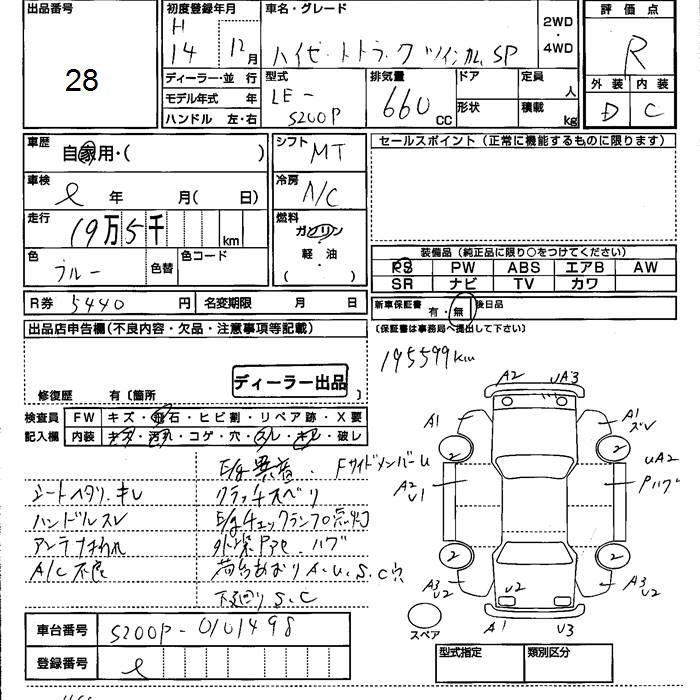 出品番号
28
初度登録年月
H
14 12月
ディーラー・並 行
モデル年式 年
ハンドル 左・右
車名・グレード
ハイゼットトラック ツインカム SP
2WD
・
4WD
型式
LE-
S200P
排気量
660
CC
ドア
形状
定員
人
積載
kg
評価点
R
外装 内装
D C
車歴
自家用・( )
シフト
MT
セールスポイント (正常に機能するものに限ります)
車検
年 月( 日)
冷房
A/C
走行
19万5千
km
燃料
ガソリン
軽・油
( )
色
ブルー
色替
色コード
装備品 (純正品に限り○をつけてください)
PS PW ABS エアB AW
SR ナビ TV カワ
R券 5440 円
名変期限 月 日
新車保証書 有・無 後日品
(保証書は事務局へ提出して下さい)
出品店申告欄(不良内容・欠品・注意事項等記載)
195599km
ディーラー出品
修復歴 有〔箇所 〕
検査員
記入欄
FW キズ・飛石・ヒビ割・リペア跡・X要
内装 キズ・汚れ・コゲ・穴・スレ・キレ・破レ
E/g異音. FサイドメンバーU
シートヘタリ.キレ クラッチスベリ
ハンドルスレ E/gチェックランプ点灯
アンテナ折れ 外装Pアセ.ハゲ
A/C不良 荷台あおりA.U.S.C穴
下回りS.C
A2 UA3
A1
A1
ズレ
2
2
A2
U1
UA2
Pハゲ
2
2
A3
U2
U2
A3
U2
A1 U3
スペア
車台番号 S200P-0101498
登録番号
型式指定 類別区分